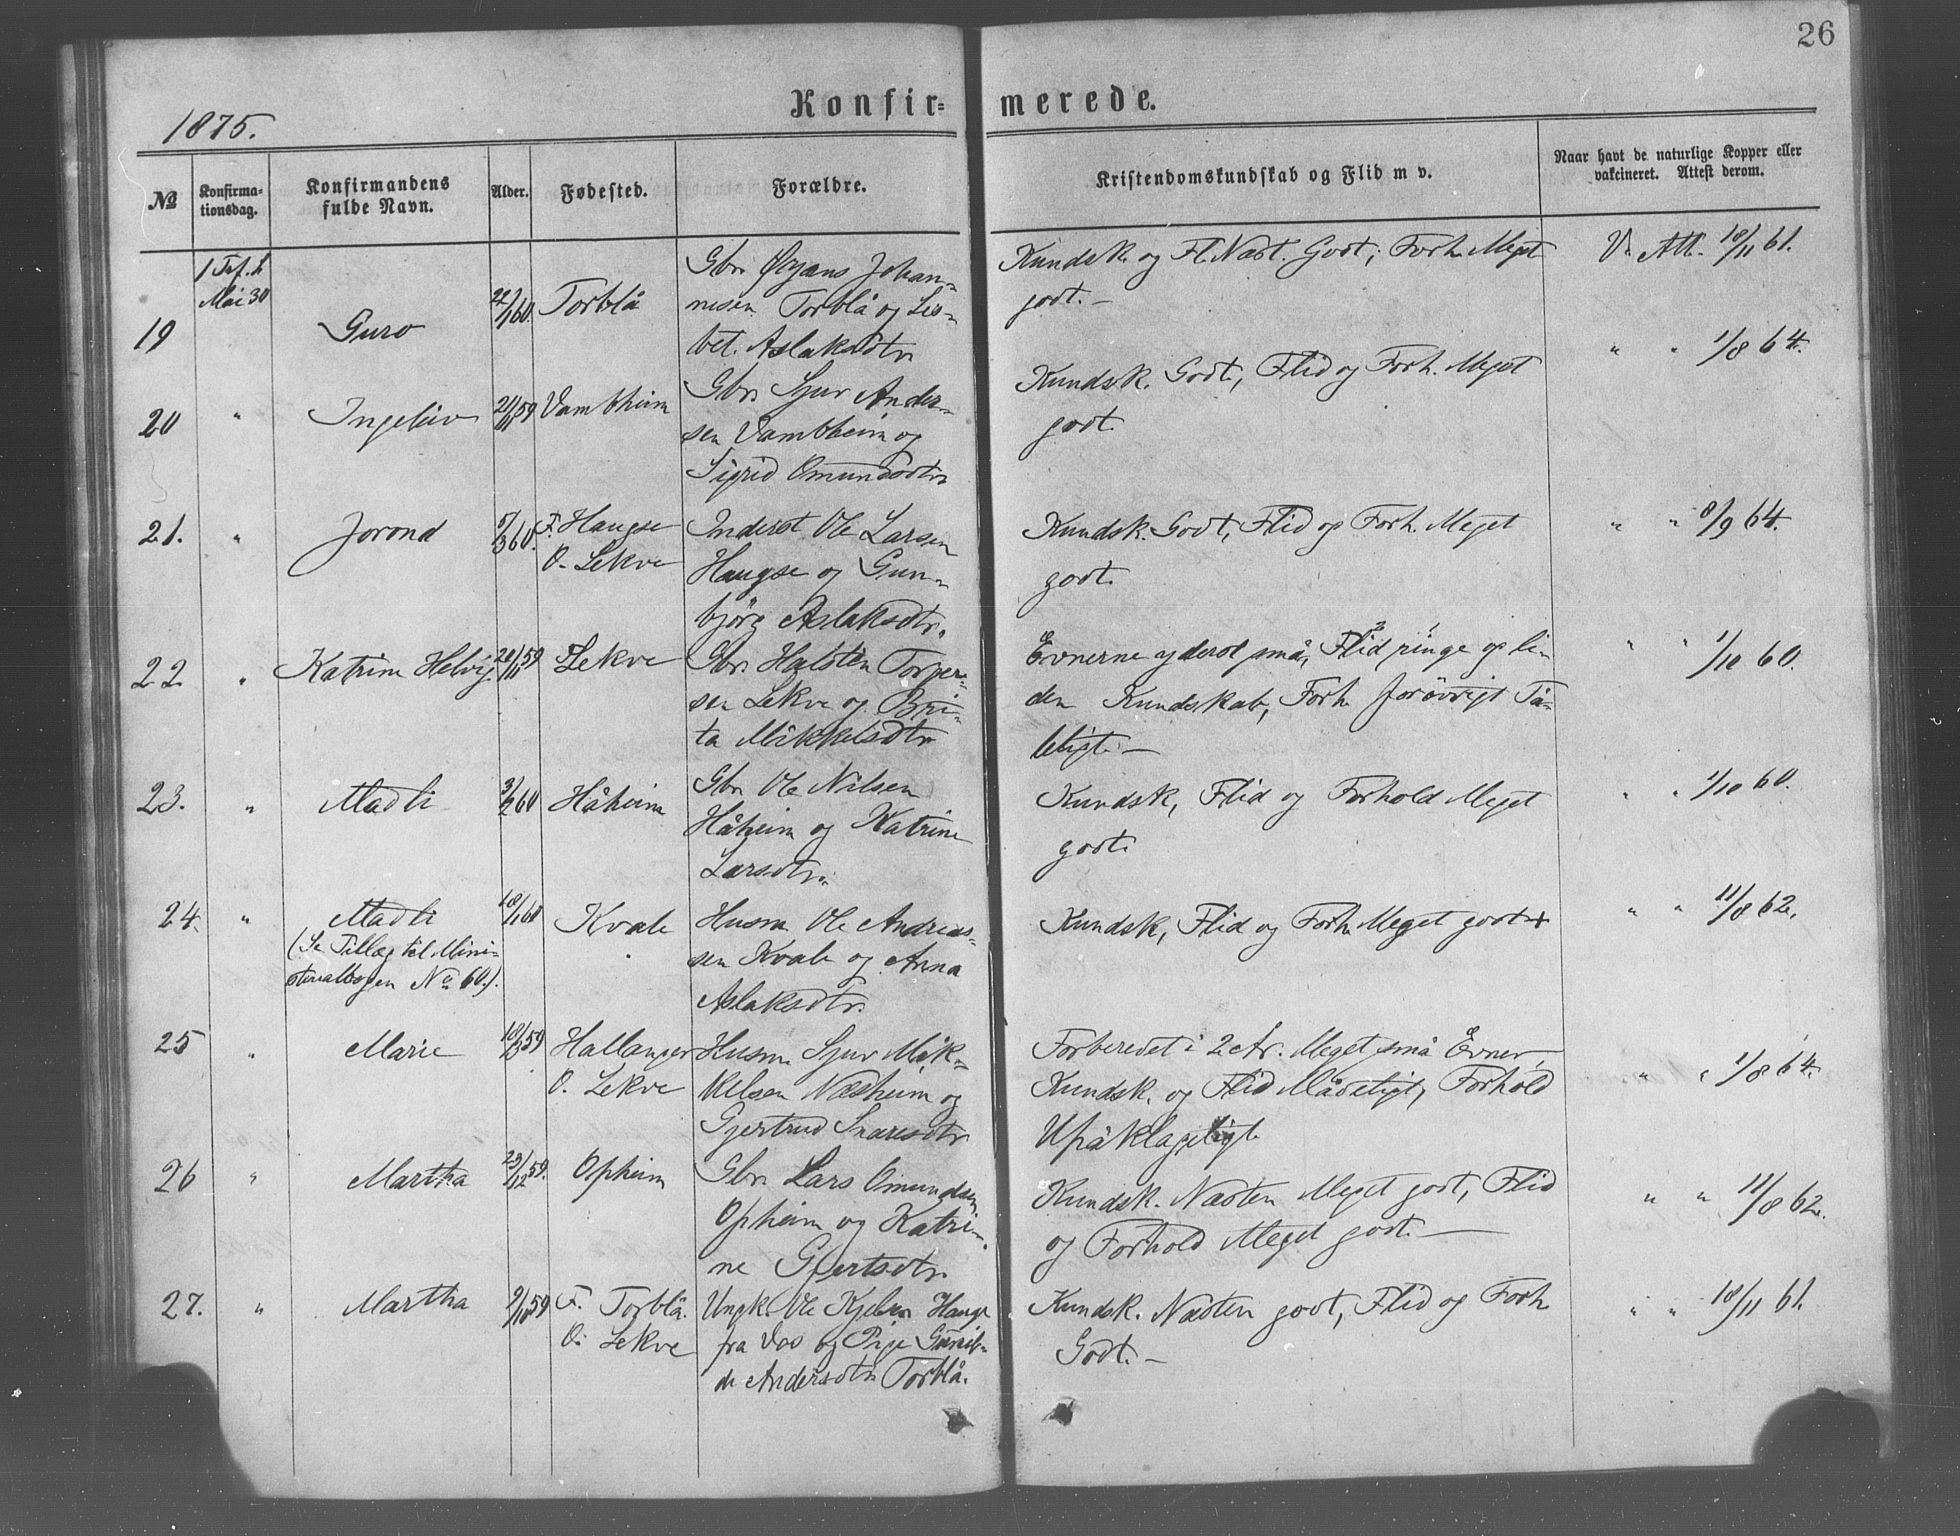 26
Konfir= merede.
1875.
No
Konfirma-
tionsdag.
Konfirmandens
fulde Navn.
Alder.
Fødested.
Forældre.
Kristendomskundskab og Flid m v.
Naar havt de naturlige Kopper eller
vakcineret. Attest derom.
19
1 Trf. h
Mai 30
Guro
22/1 60.
Torblå
Gbr. Ørjans Johan-
nesen Torblå og Lis-
bet. Aslaksdtr.
Kundsk. og Fl. Næst. Godt; Forh. Meget
godt.-
V. Att. 18/11 61.
20
"
Ingeleiv
59
Vambheim
Gbr. Sjur Ander-
sen Vambheim og
Sigrid Omundsdtr.
Kundsk. Godt, Flid og Forh. Meget
godt.
" " 1/8 64.
21.
"
Jorond
5/3 60.
F. Haugse
O. Lekve
Inderst Ole Larsen
Haugse og Gun-
björg Aslaksdtr.
Kundsk. Godt, Flid og Forh. Meget
godt.
" " 8/9 64.
22
"
Katrina Helvig.
20/11 59
Lekve
Gbr. Halsten Torger-
sen Lekve og Bri-
ta Mikkelsdtr
Evnerne yderst små, Flid ringe og li-
den Kundskab, Forh. forövrigt Tå-
leligt.-
" " 1/10 60.
23.
"
Madli
3/2 60
Håheim
Gbr. Ole Nilsen
Håheim og Katrine
Larsdtr.
Kundsk, Flid og Forhold Meget
godt.
" " 1/10 60.
24.
"
Madli
(Se Tillæg til Mini-
sterialbogen No 60.).
18/1 60
Kvale
Husm. Ole Andreas-
sen Kvale og Anna
Aslaksdtr.
Kundsk, Flid og Forh. Meget godt+
" " 11/8 62.
25
"
Marie
18/3 59
Hallanger
O. Lekve
Husm. Sjur Mik-
kelsen Næsheim og
Gjertrud Snaresdtr
Forberedet i 2 År. Meget små Evner
Kundsk. og Flid Mådeligt, Forhold
Upåklageligt
" " 1/8 64.
26
"
Martha
23/12 59.
Opheim
Gbr. Lars Omundsen
Opheim og Katri-
ne Gjertsdtr.
Kundsk. Næsten Meget godt, Flid
og Forhold Meget godt.-
" " 11/8 62.
27.
"
Martha
9/10 59
F. Torblå.
O. Lekve
Ungk. Ole Hauge
fra Vos og Pige Gunil-
de Andersdtr. Torblå.
Kundsk. Næsten godt, Flid og Forh
Godt.-
" " 18/11 61.